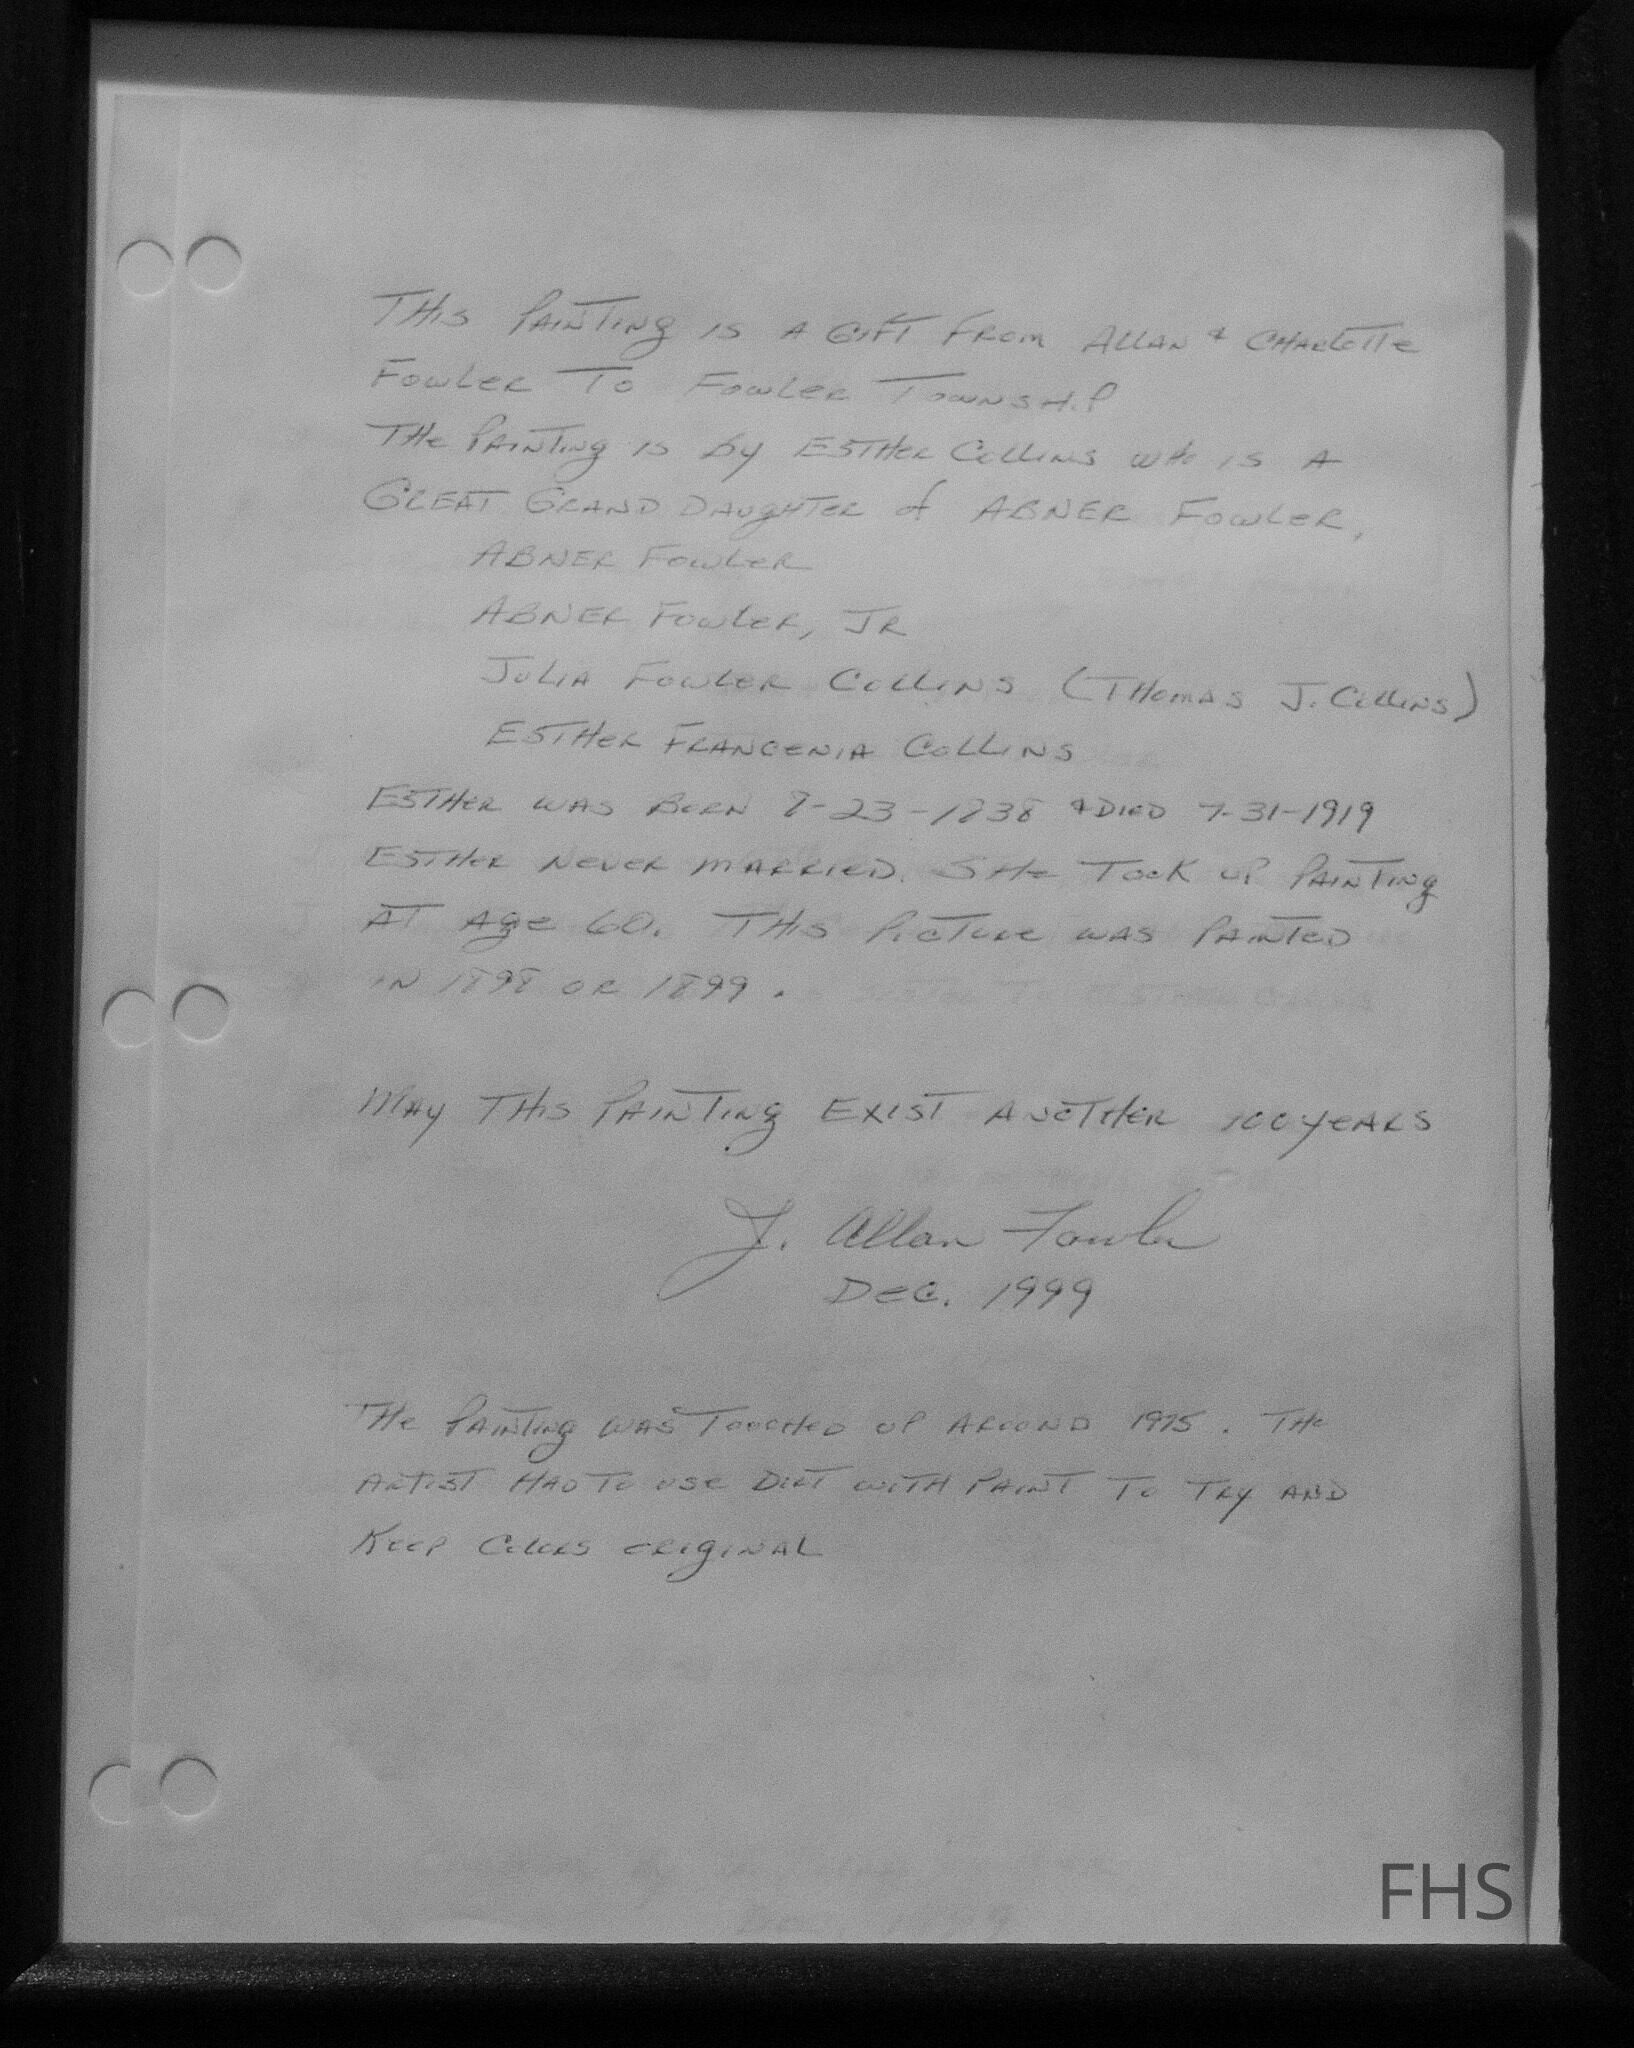 THIS PAINTING IS A GIFT FROM ALLAN & CHARLOTTE
FOWLER TO FOWLER TOWNSHIP
THE PAINTING IS BY ESTHER COLLINS WHO IS A
GREAT GRAND DAUGHTER of ABNER FOWLER,
ABNER FOWLER
ABNER FOWLER, JR
JULIA FOWLER COLLINS (THOMAS J. COLLINS)
ESTHER FRANCENIA COLLINS
ESTHER WAS BORN 8-23-1838 & DIED 7-31-1919
ESTHER NEVER MARRIED. SHE TOOK UP PAINTING
AT AGE 60. THIS PICTURE WAS PAINTED
IN 1898 OR 1899.
MAY THIS PAINTING EXIST ANOTHER 100 YEARS
J. Allan Fowler
DEC. 1999
THE PAINTING WAS TOUCHED UP AROUND 1975. THE
ARTIST HAD TO USE DIRT WITH PAINT TO TRY AND
KEEP COLORS ORIGINAL
FHS